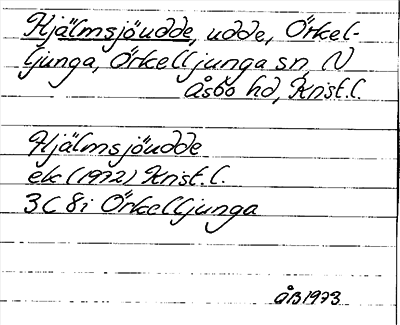 Hjälmsjöudde, udde, Örkel-
ljunga, Örkelljunga sn, N
Åsbo hd, Krist. l.
Hjälmsjöudde
ek (1972) Krist. l.
3C 8i Örkelljunga
ÅB 1973